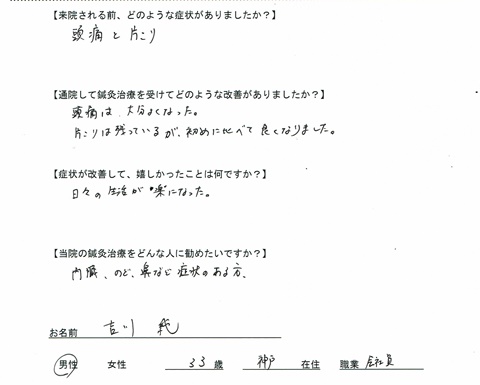 【来院される前、どのような症状がありましたか？】
頭痛と片こり
【通院して鍼灸治療を受けてどのような改善がありましたか？】
頭痛は、大分よくなった。
片こりは残っているが、初めに比べて良くなりました。
【症状が改善して、嬉しかったことは何ですか？】
日々の生活が"楽"になった。
【当院の鍼灸治療をどんな人に勧めたいですか？】
内臓、のど、鼻など症状のある方、
お名前 吉川
男性 女性 33歳 神戸 在住 職業 会社員